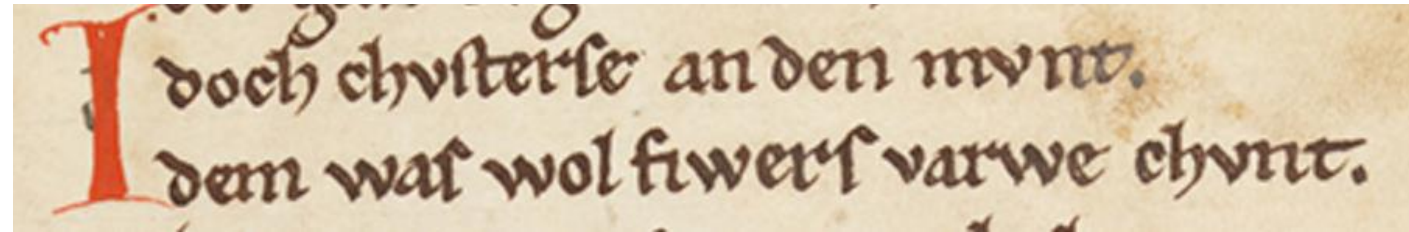 Idoch chvſterſe an den mvnt.
dem waſ wol fiwerſ varwe chvnt.